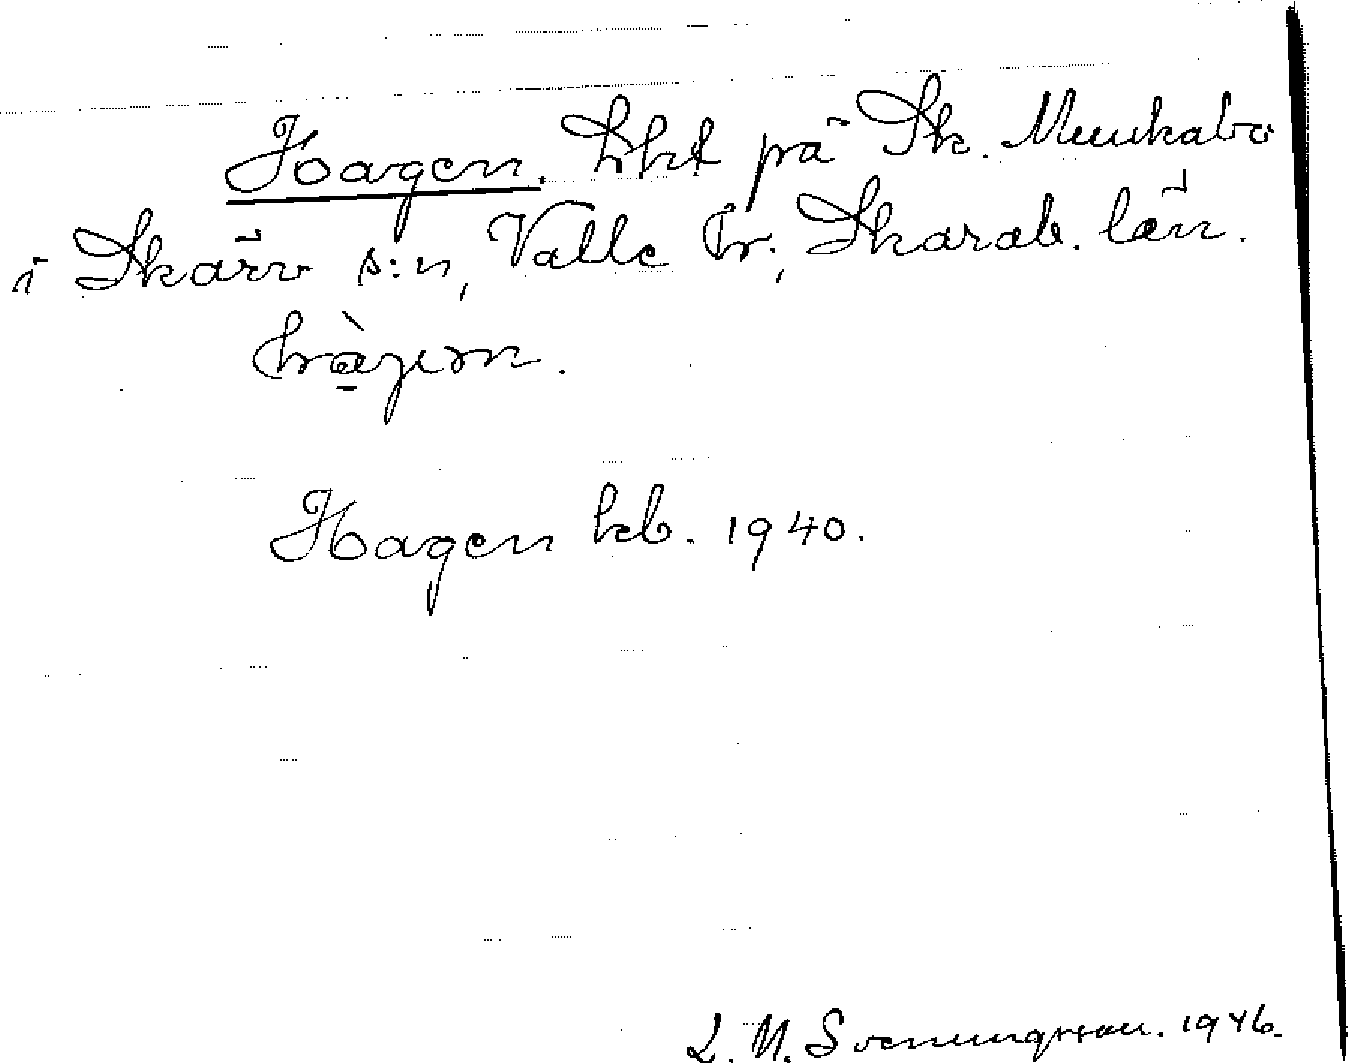 Hagen. Lht på Sk. Munkabo
i Skärv s:n, Valle hr., Skarab. län.
hàgen.
Hagen kb. 1940.
L. M. Svenungsson. 1946.